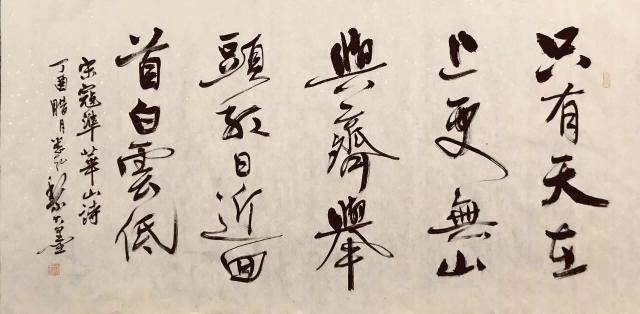 只有天在
上更無山
與齊舉
頭紅日近回
首白雲低
宋寇準華山詩
丁酉腊月